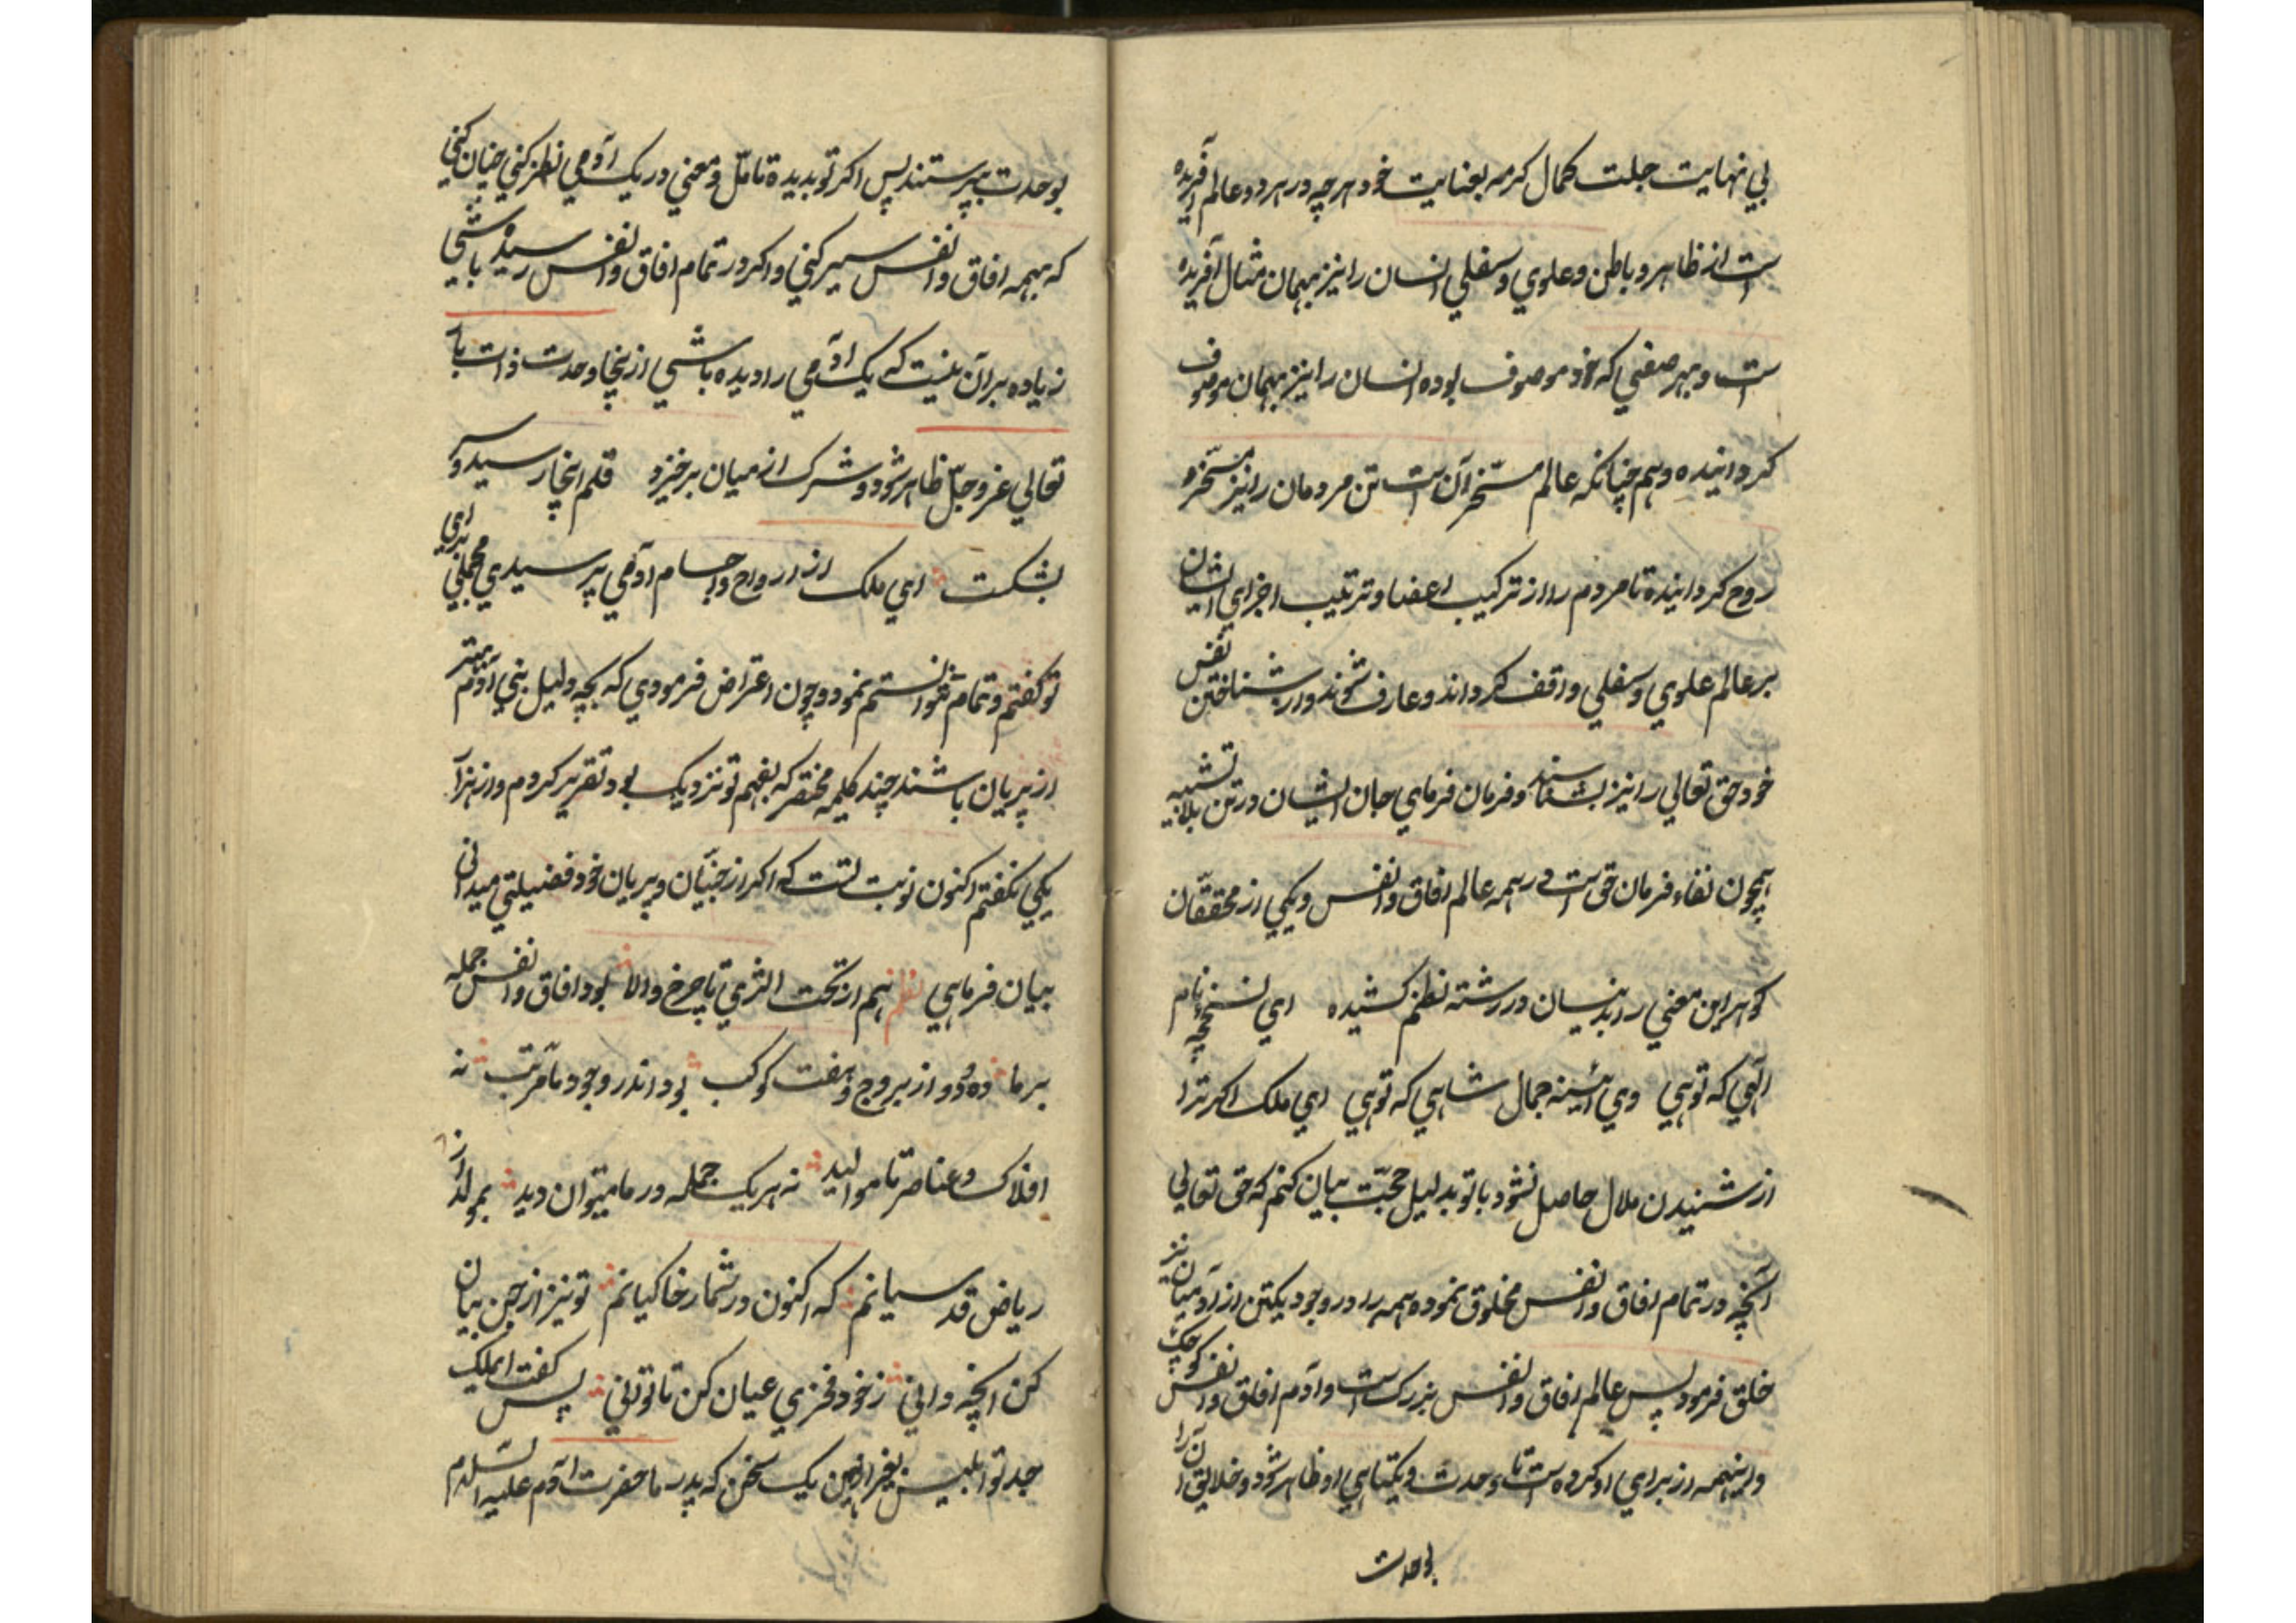 بی نهایت جلت کمال کرمه بعنایت خود هرچه در هر دو عالم آفریده
است از ظاهر و باطن و علوی و سفلی انسان را نیز بهمان مثال آفریده
است و بهر صفتی که خود موصوف بوده انسان را نیز بهمان موصوف
کردانیده و هم چنانکه عالم مسخر آن است تن مردمان را نیز مسخر
روح کردانیده تا مردم را از ترکیب اعضا و ترتیب اجزای ایشان
بر عالم علوی و سفلی واقف کرداند و عارف شوند و از شناختن نفس
خود حق تعالی را نیز بشناسند و فرمان فرمای جان ایشان در تن بلا تشبیه
همچون نفاء فرمان حق است در همه عالم افاق و انفس و یکی از محققان
کوهر این معنی را بدینسان در رشته نظم کشیده ای نسخه نام
الهی که توهی وی آئینه جمال شاهی که توهی ای ملک اکر ترا
از شنیدن ملال حاصل نشود با تو بدلیل حجت بیان کنم که حق تعالی
آنچه در تمام افاق و انفس مخلوق نموده همه را در وجود یکتن از آدمیان نیز
خلق فرمود پس عالم افاق و انفس بزرک است و آدم افاق و انفس کوچک
و اینهمه از برای او کرده است تا وحدت و یکتاهی او ظاهر شود و خلایق آنرا
بوحدت
بوحدت بپرستند پس اکر تو بدیده تامل و معنی در یک آدمی نظر کنی چنان کنی
که بهمه افاق و انفس سیر کنی و اکر در تمام افاق و انفس رسیده باشی
زیاده بر آن نیست که یک آدمی را دیده باشی از ینجا وحدت ذات با
تعالی عز و جل ظاهر شود و شرک از میان برخیزد قلم اینجا رسید و سر
بشکست ای ملک از ارواح و اجسام آدمی پرسیدی مجملی برای
تو کفتم و تمام نتوانستم نمود و چون اعتراض فرمودی که بچه دلیل بنی آدم بهتر
از پریان باشند چند کلمه مختصر که بفهم تو نزدیک بود تقریر کردم و از هزار
یکی نکفتم اکنون نوبت تست که اکر از جنیان و پریان خود فضیلتی میدانی
بیان فرماهی نظم هم از تحت الثری تا چرخ والا بود افاق و انفس جمله
بر ما ده و دو از بروج و هفت کوکب بود اندر وجود ما مرتب نه
افلاک و عناصر تا موالید نه هر یک جمله در ما میتوان دید بمولد از
ریاض قدسیانم که اکنون در شمار خاکیانم تو نیز از جن بیان
کن آنچه دانی ز خود فخری عیان کن تا توانی پس کفت ایملک
جد تو ابلیس بغیر ازین یک سخن که پدر ما حضرت آدم علیه السلام